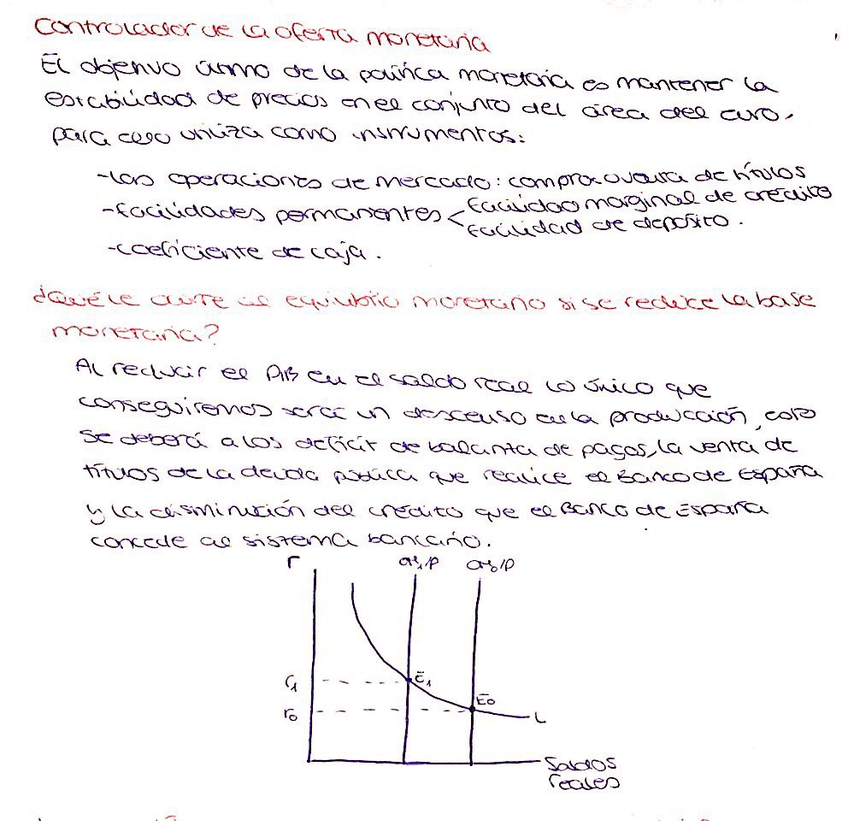 Controlador de la oferta monetaria
El objetivo último de la política monetaria es mantener la
estabilidad de precios en el conjunto del área del euro,
para ello utiliza como instrumentos:
-las operaciones de mercado: compra o venta de títulos
-facilidades permanentes < facilidad marginal de crédito
facilidad de depósito.
-coeficiente de caja.
¿Qué le ocurre al equilibrio monetario si se reduce la base
monetaria?
Al reducir el en el saldo real lo único que
conseguiremos será un descenso en la producción, esto
se deberá a los deficit de balanza de pagos, la venta de
títulos de la deuda pública que realice el Banco de España
y la disminución del crédito que el Banco de España
concede al sistema bancario.
r
r₁
E₁
r₀
E₀
L
Saldos
reales